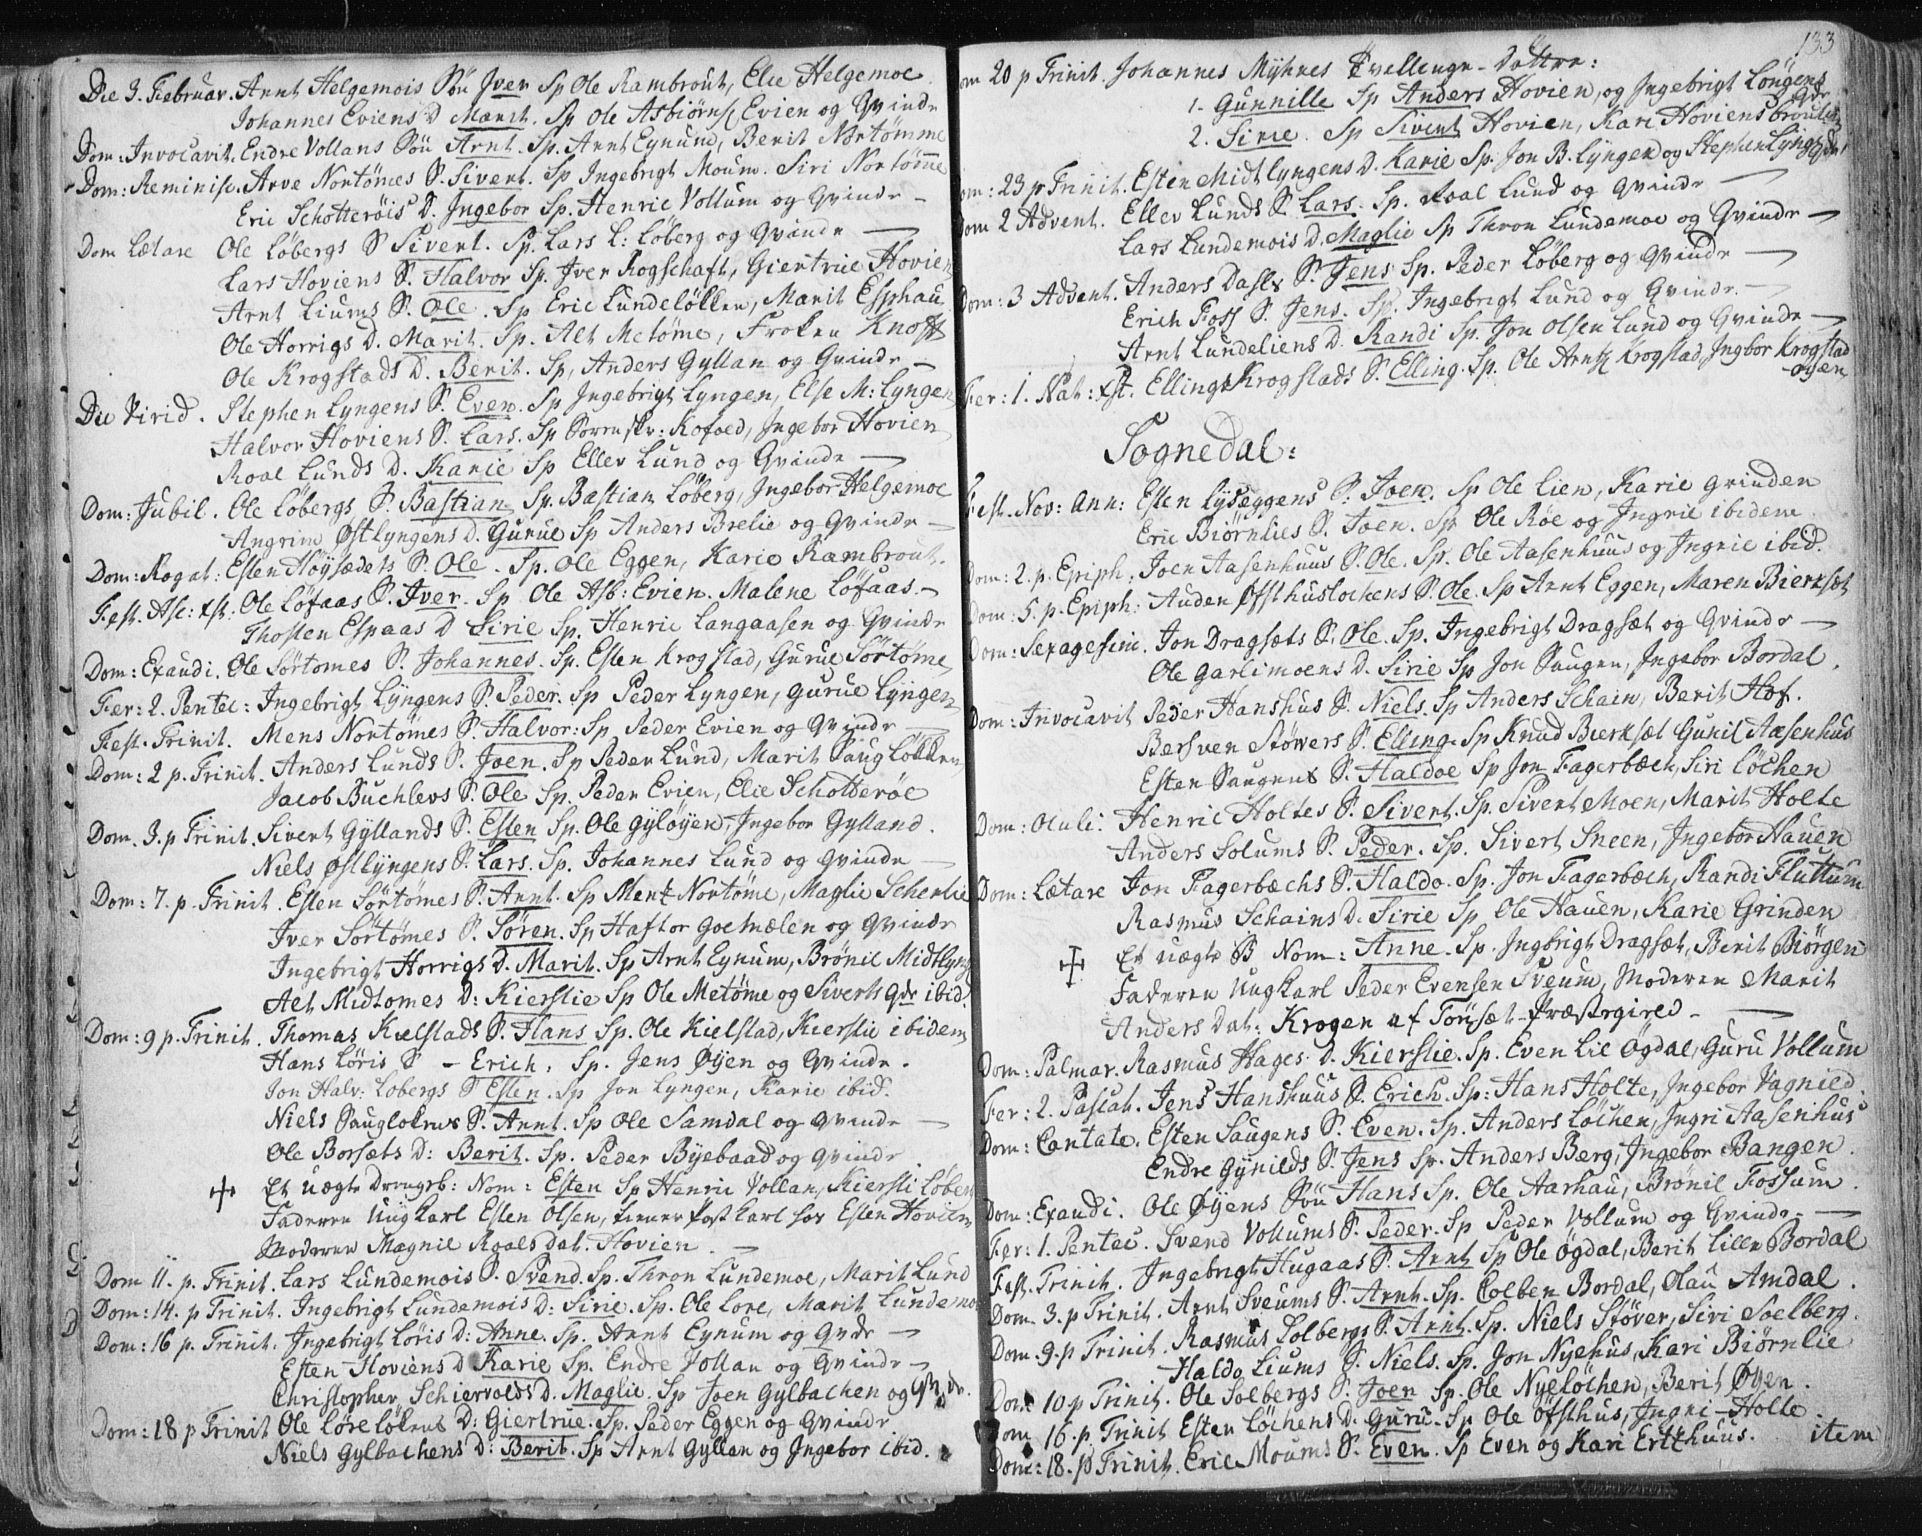 Die 3. Februar. Arnt Helgemois Sön Iver Sp Ole Rambrout, Elie Helgemoe.
Johannes Eviens D Marit. Sp Ole Asbiörns. Evien og Qvinde
Dom: Invocavit. Endre Vollans Sön Arnt. Sp. Arnt Eynund, Berit Nortömme
Dom: Reminisc. Arve Nortömes S. Sivert. Sp Ingebrigt Moum. Siri Nortömme
Eric Schotteröis D. Ingebor Sp. Henric Vollum og Qvinde –
Dom Lætare Ole Löbergs S Sivert. Sp. Lars L: Löberg og Qvinde —
Lars Hoviens S. Halvor Sp. Iver Rogschaft, Giertrue Hovien
Arnt Liums S. Ole. Sp Eric Lundelökken, Marit Esphau
Ole Horrigs D. Marit. Sp. Alt Metöme, Froken Knoff
Ole Krogstads D. Berit. Sp, Anders Gyllan og Qvinde –
Die Virid. Stephen Lyngens S. Even. Sp Ingebrigt Lyngen, Else M: Lyngen
Halvor Hoviens S. Lars. Sp Sorenskr: Kofoed, Ingebor Hovien
Roal Lunds D. Karie Sp Ellev Lund og Qvinde —
Dom: Jubil. Ole Löbergs S. Bastian Sp. Bastian Löberg, Ingebor Helgemoe
Angrim Östlyngens D. Gurue Sp Anders Brelie og Qvinde —
Dom: Rogat: Esten Höysædets S. Ole. Sp. Ole Eggen, Karie Rambrout.
Fest. Asc: Xst. Ole Löfaas S. Iver. Sp Ole Asb: Evien. Malene Löfaas –
Thosten Espaas D Sirie Sp. Henric Langaasen og Qvinde
Dom: Exaudi. Ole Sörtomes S. Johannes. Sp. Esten Krogstad, Gurue Sörtöme
Fer: 2. Pentec: Ingebrigt Lyngens S. Peder. Sp Peder Lyngen, Gurue Lyngen
Fest. Trinit. Mens Nortömes S. Halvor: Sp Peder Evien og Qvinde —
Dom: 2 p. Trinit. Anders Lunds S. Joen. Sp Peder Lund, Marit Saugløkken
Jacob Buchlevs S. Ole Sp. Peder Evien, Elie Schotteröe
Dom. 3. p Trinit. Sivert Gyllands S. Esten Sp. Ole Gylöyen, Ingebor Gylland.
Niels Östlyngens S. Lars. Sp. Johannes Lund og Qvinde —
Dom: 7. p. Trinit. Esten Sörtömes S. Arnt. Sp Ment Nortöme, Maglie Scherlie
Iver Sörtömes S. Sören. Sp Haftor Goetmælen og Qvinde
Ingebrigt Horrigs D. Marit. Sp Arnt Eynum, Brönil Midtlyng
Alt Midtomes D: Kierstie Sp Ole Metöme og Siverts Qde ibid.
Dom: 9 p. Trinit. Thomas Kielstads S. Hans Sp. Ole Kielstad, Kierstie ibidem
Hans Löris S – Erich. Sp. Jens Öyen og Qvinde.
Jon Halv: Lobergs S Esten. Sp Jon Lyngen, Karie ibid.
Niels Sauglokens S. Arnt. Sp Ole Samdal og Qvinde —
Ole Borsæts D: Berit. Sp. Peder Byebaad og Qvinde
Et uægte Drengeb: Nom: Esten Sp Henric Vollan, Kiersti Löberg
Faderen Ungkarl Esten Olsen, tiener Postkarl hos Esten Hovien
Moderen Magnil Roals Dat. Hovien. —
Dom 11. p. Trinit. Lars Lundemois S. Svend. Sp. Thron Lundemoe, Marit Lund
Dom: 14. p Trinit. Ingebrigt Lundemois D: Sirie. Sp. Ole Lore, Marit Lundemo
Dom: 16 p. Trinit. Ingebrigt Löris D: Anne. Sp. Arnt Eynum og Qvde —
Esten Hoviens D Karie Sp. Endre Vollan og Qvinde –
Christopher Schiervolds D. Maglie. Sp Joen Gylbachen og Qvinde.
Dom: 18 p Trinit Ole Lörelökens D: Giertrue: Sp. Peder Eggen og Qvinde
Niels Gylbachens D: Berit. Sp Arnt Gyllan og Ingebor ibid.
133
Dom 20 p Trinit. Johannes Myhres Tvellenge-Döttre:
1. Gunnille Sp Anders Hovien, og Ingebrigt Löngens Qde
2. Sirie. Sp Sivert Hovien, Kari Hoviensbrouten
Dom: 23 p Trinit. Esten Midtlyngens D. Karie Sp. Jon B. Lyngen og Stephen Lyngs Qde
Dom 2 Advent. Ellev Lunds S. Lars. Sp. Roal Lund og Qvinde —
Lars Lundemois D. Maglie Sp Thron Lundemoe og Qvinde —
Dom: 3 Advent. Anders Dasls S. Jens Sp. Peder Löberg og Qvinde —
Erich Foss S. Jens. Sp. Ingebrigt Lund og Qvinde. —
Arnt Lundeliens D. Randi Sp. Jon Olsen Lund og Qvinde —
Fer: 1. Nat: Xst. Ellings Krogstads S. Elling. Sp. Ole Arntz Krogstad, Ingbor Krogstad
Sognedal:
Fest. Nov: Ann: Esten Lysæggens S. Joen. Sp Ole Lien, Karie Grinden
Eric Biörnlies S. Joen. Sp Ole Röe og Ingrie ibidem.
Dom: 2. p. Epiph: Joen Aasenhuus S. Ole. Sp. Ole Aasenhuus og Ingrie ibid.
Dom: 5. p. Epiph: Auden Öfsthusløchens S. Ole. Sp Arnt Eggen, Maren Bierksæt
Dom: Sexagesim. Jon Dragsæts S. Ole. Sp. Ingebrigt Dragsæt og Qvinde —
Ole Garlimoens D. Sirie Sp Jon Saugen, Ingebor Bordal.
Dom: Invocavit Peder Hanshus S. Niels. Sp Anders Schain, Berit Hof.
Bersven Stövers S. Elling. Sp Knud Bierksæt Gunil Aasenhus
Esten Saugens S. Haldoe Sp Jon Fagerbæch, Siri Löchen
Dom: Oculi: Henric Holtes S. Sivert. Sp. Sivert Moen, Marit Holte
Anders Solums S. Peder. Sp. Sivert Sneen, Ingebor Hauen
Dom: Lætare Jon Fagerbæchs S. Haldo. Sp. Jon Fagerbæch, Randi Fluttum
Rasmus Schains D. Sirie Sp Ole Hauen, Karie Grinden
Et uægte B Nom: Anne. Sp. Ingbrigt Dragsæt, Berit Biörgen
Faderen Ungkarl Peder Evensen Sveum, Moderen Marit
Anders Dat: Krogen af Tonsæt-Præstegield — —
Dom: Palmar. Rasmus Hages D. Kierstie. Sp. Even Lil Ögdal, Guru Vollum
Fer: 2. Pascat. Jens Hanshuus S. Erich. Sp: Hans Holte, Ingebor Vagnild
Dom: Cantate. Esten Saugens S. Even. Sp. Anders Löchen, Ingri Aasenhus
Endre Gynilds S. Jens Sp. Anders Berg, Ingebor Bangen.
Dom: Exaudi. Ole Öyens Sön Hans Sp. Ole Aarhau, Brönil Fossum.
Fer: 1. Pentec. Svend Vollums S. Peder. Sp Peder Vollum og Qvinde —
Fest. Trinit. Ingebrigt Hugaas S. Arnt Sp Ole Ögdal, Berit Lille Bordal
Dom. 3. p Trinit. Arnt Sveums S. Arnt. Sp. Colben Bordal, Olau Amdal.
Dom. 9. p Trinit. Rasmus Solbergs S. Arnt. Sp. Niels Stöver, Siri Soelberg.
Haldo Liums S. Niels. Sp. Jon Nyehus, Kari Biörnlie
Dom. 10 p Trinit. Ole Solbergs S. Joen Sp. Ole Nyelöchen, Berit Öyen.
Dom 16. p Trinit Esten Löchens D. Guru. Sp Ole Öfsthus, Ingri Holte
Dom: 18. p Trinit. Eric Moums S. Even. Sp Even og Kari Ertzhuus. item